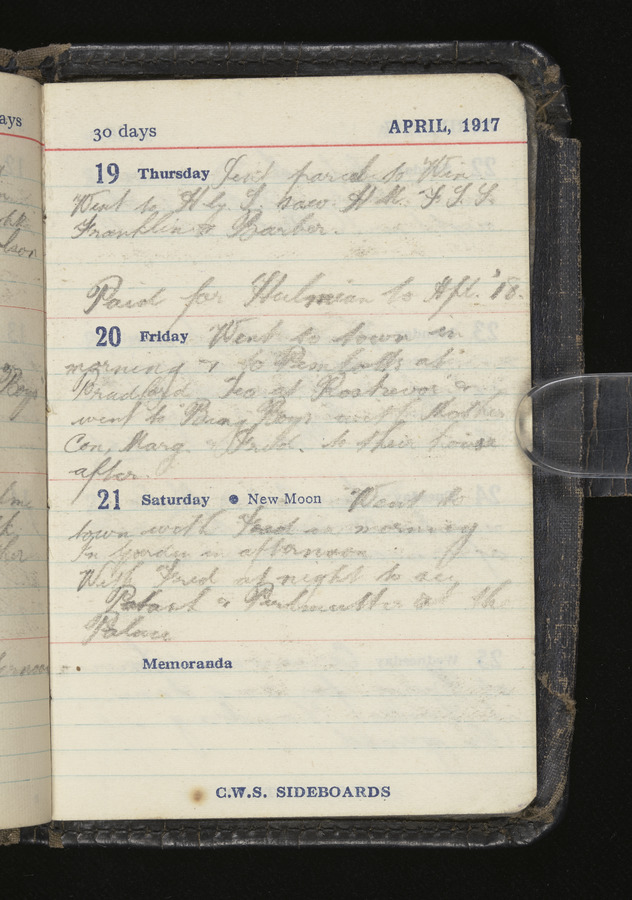 ays
30 days
APRIL, 1917
19 Thursday Sent parcel to Wm
Went to Hly S. saw H M. F. S. S.
Franklin & Barber.
Paid for Hulmian to Apl. '18.
20 Friday Went to town in
morning & to at
Bradford Tea at &
went to Bing Boys with Mother
Con, Marg. & Fred. to their house
after.
21 Saturday New Moon Went to
town with Fred in morning
In garden in afternoon
With Fred at night to see
Potash & Perlmutter at the
Palace
Memoranda
C.W.S. SIDEBOARDS